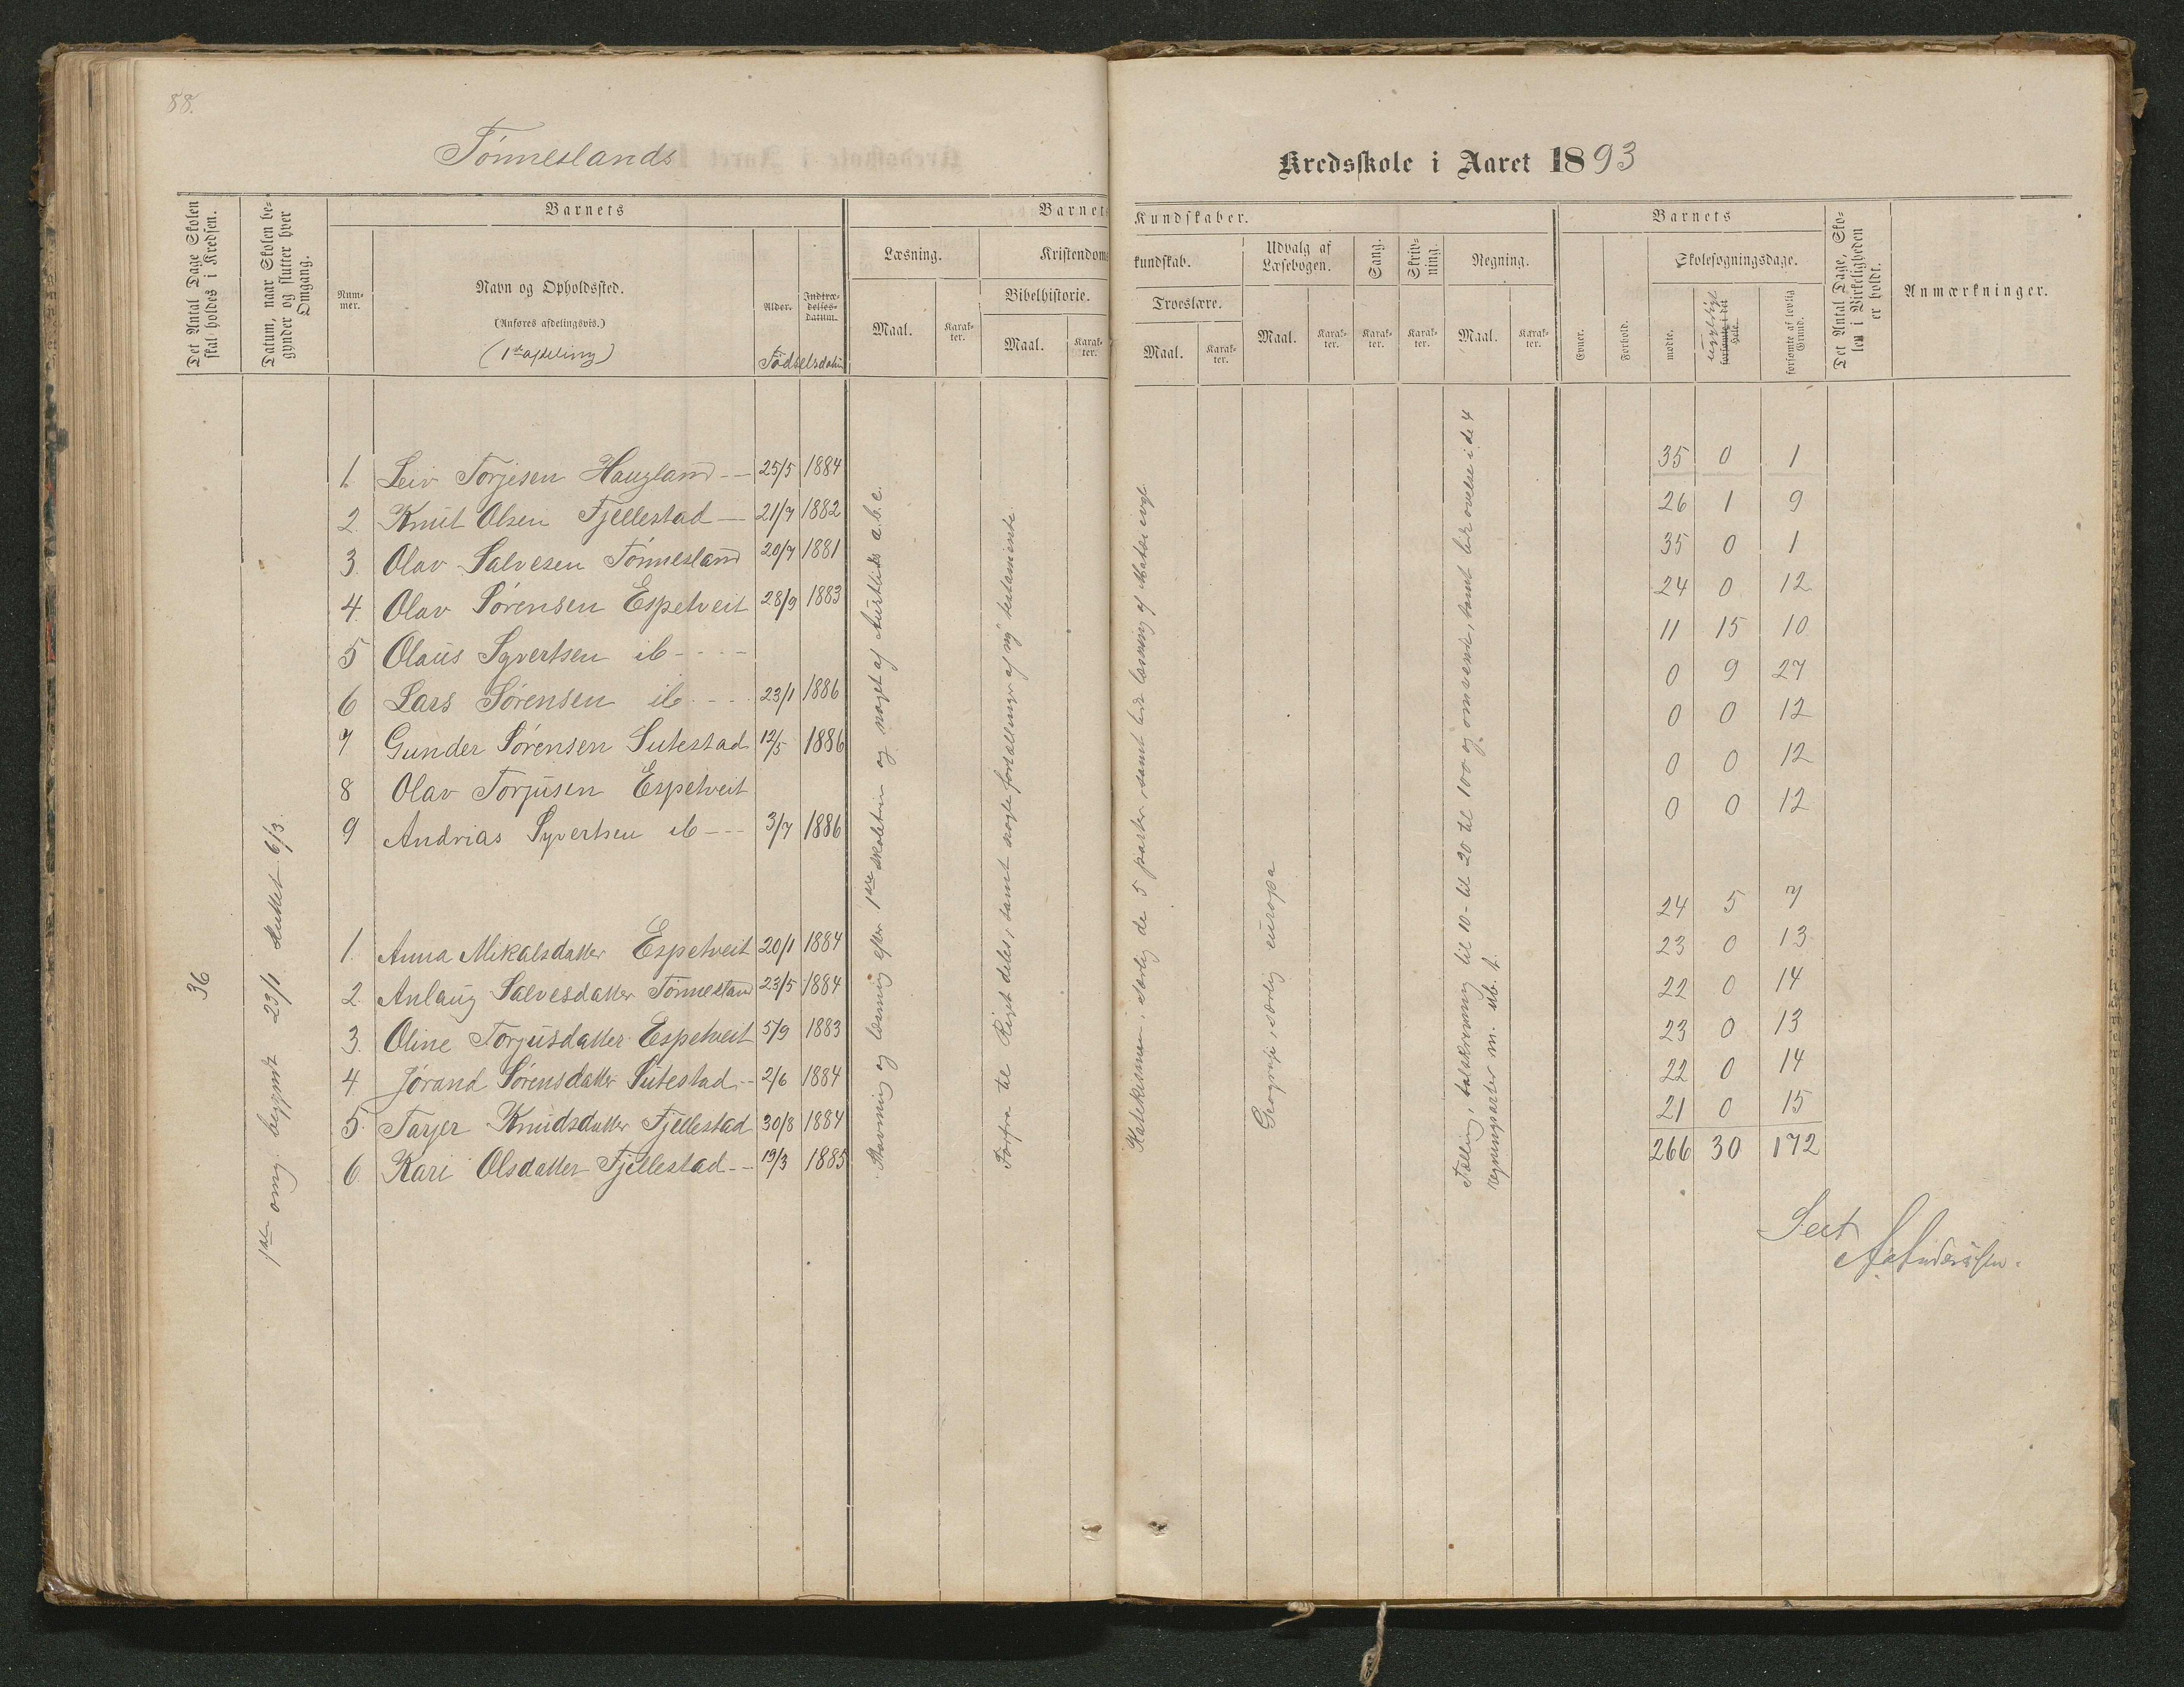 88.
Tönneslands
Kredsskole i Aaret 1893
Det Antal Dage Skolen skal holdes i Kredsen.
Datum, naar Skolen begynder og slutter hver Omgang.
Barnets
Nummer.
Navn og Opholdssted.
(Anføres afdelingsvis.)
(1ste afdeling)
Alder.
Indtrædelses-datum.
Födselsdatum
Barnets
Læsning.
Maal.
Karakter.
Kristendoms
Bibelhistorie.
Maal.
Karakter.
Kundskaber.
kundskab.
Troeslære.
Maal.
Karakter.
Udvalg af Læsebogen.
Maal.
Karakter.
Sang.
Karakter.
Skrivning.
Karakter.
Regning.
Maal.
Karakter.
Barnets
Evner.
Forhold.
Skolesøgningsdage.
mødte.
ugyldigt
forsømte i det Hele.
forsømte af lovlig Grund.
Det Antal Dage, Skolen i Virkeligheden er holdt.
Anmærkninger.
36
1ste omg. begyndt 23/1 sluttet 6/3.
1. Leiv Torjesen Haugland -- 25/5 1884 35 0 1
2. Knut Olsen Fjellestad — 21/7 1882 26 1 9
3. Olav Salvesen Tönnesland 20/7 1881 35 0 1
4. Olav Sörensen Espetveit 28/9 1883 24 0 12
5 Olaus Syvertsen ib - - - - 11 15 10
6 Lars Sörensen ib. - - . 23/1 1886 0 9 27
7 Gunder Sörensen Sutestad 12/5 1886 0 0 12
8 Olav Torjusen Espetveit 0 0 12
9 Andrias Syvertsen ib - - - 3/7 1886 0 0 12
1. Anna Mikalsdatter Espetveit 20/1 1884 24 5 7
2. Anlaug Salvesdatter Tönnesland 23/5 1884 23 0 13
3. Oline Torjusdatter Espetveit 5/9 1883 22 0 14
4. Jörand Sörensdatter Sutestad -- 2/6 1884 23 0 13
5. Tarjer Knudsdatter Fjellestad 30/8 1884 22 0 14
6. Kari Olsdatter Fjellestad -- 19/3 1885 21 0 15
266 30 172
Stavning og læsning efter 1ste skoletrin og noget af Austlids a.b.c.
Forfra til Riget deles, samt nogle fortællinger af ny testamente.
Katekismen, særlig de 5 parter, samt lidt læsning af
Geografi, særlig europa
Tælling, talskrivning til 10 - til 20 til 100 og omvendt, samt lidt övelse i de 4
regningsarter m. ub. t.
Seet